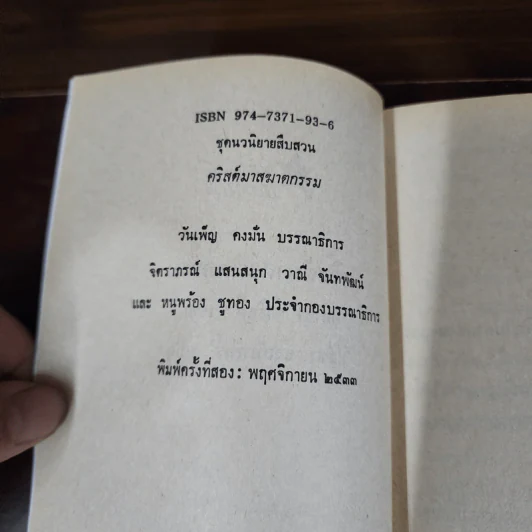 ISBN 974-7371-93-6
ชุดนวนิยายสืบสวน
คริสต์มาสฆาตกรรม
วันเพ็ญ คงมั่น บรรณาธิการ
จิตราภรณ์ แสนสนุก วาณี จันทพัฒน์
และ หนูพร้อง ชูทอง ประจำกองบรรณาธิการ
พิมพ์ครั้งที่สอง: พฤศจิกายน ๒๕๓๓